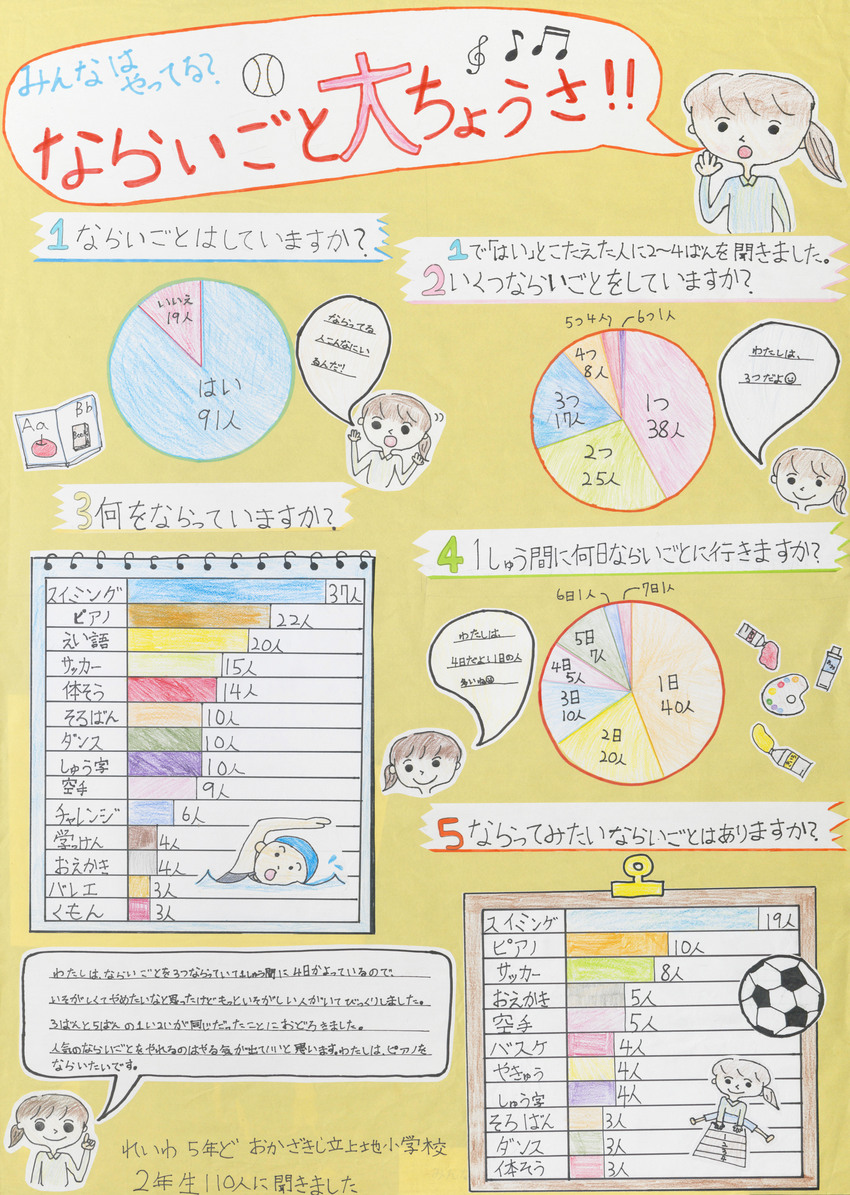 みんなは
やってる?
ならいごと大ちょうさ!!
1ならいごとはしていますか?
いいえ
19人
はい
91人
ならってる
人こんなにい
るんだ!
Aa
Bb
1で「はい」とこたえた人に2~4ばんを聞きました。
2いくつならいごとをしていますか?
5つ4人
6つ1人
4つ
8人
3つ
17人
1つ
38人
2つ
25人
わたしは、
3つだよ
3何をならっていますか?
スイミング 37人
ピアノ 22人
えい語 20人
サッカー 15人
体そう 14人
そろばん 10人
ダンス 10人
しゅう字 10人
空手 9人
チャレンジ 6人
学っけん 4人
おえかき 4人
バレエ 3人
くもん 3人
4 1しゅう間に何日ならいごとに行きますか?
6日1人
7日1人
5日
7人
4日
5人
3日
10人
1日
40人
2日
20人
わたしは、
4日だよ!1日の人
多いね
5ならってみたいならいごとはありますか?
スイミング 19人
ピアノ 10人
サッカー 8人
おえかき 5人
空手 5人
バスケ 4人
やきゅう 4人
しゅう字 4人
そろばん 3人
ダンス 3人
体そう 3人
わたしは、ならいごとを3つならっていて1しゅう間に4日かよっているので、
いそがしくてやめたいなと思ったけどもっといそがしい人がいてびっくりしました。
3ばんと5ばんの1い2いが同じだったことにおどろきました。
人気のならいごとをやれるのはやる気が出ていいと思います。わたしは、ピアノを
ならいたいです。
れいわ5年ど おかざきし立上地小学校
2年生110人に聞きました